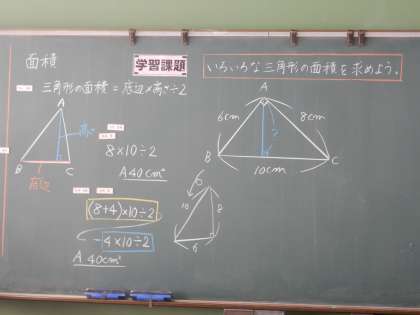 面積
学習課題
いろいろな三角形の面積を求めよう。
三角形の面積=底辺×高さ÷2
A
高さ
B
C
底辺
8×10÷2
A 40cm²
(8+4)×10÷2
-4×10÷2
A 40cm²
A
6cm
8cm
?
B
C
10cm
10
8
6